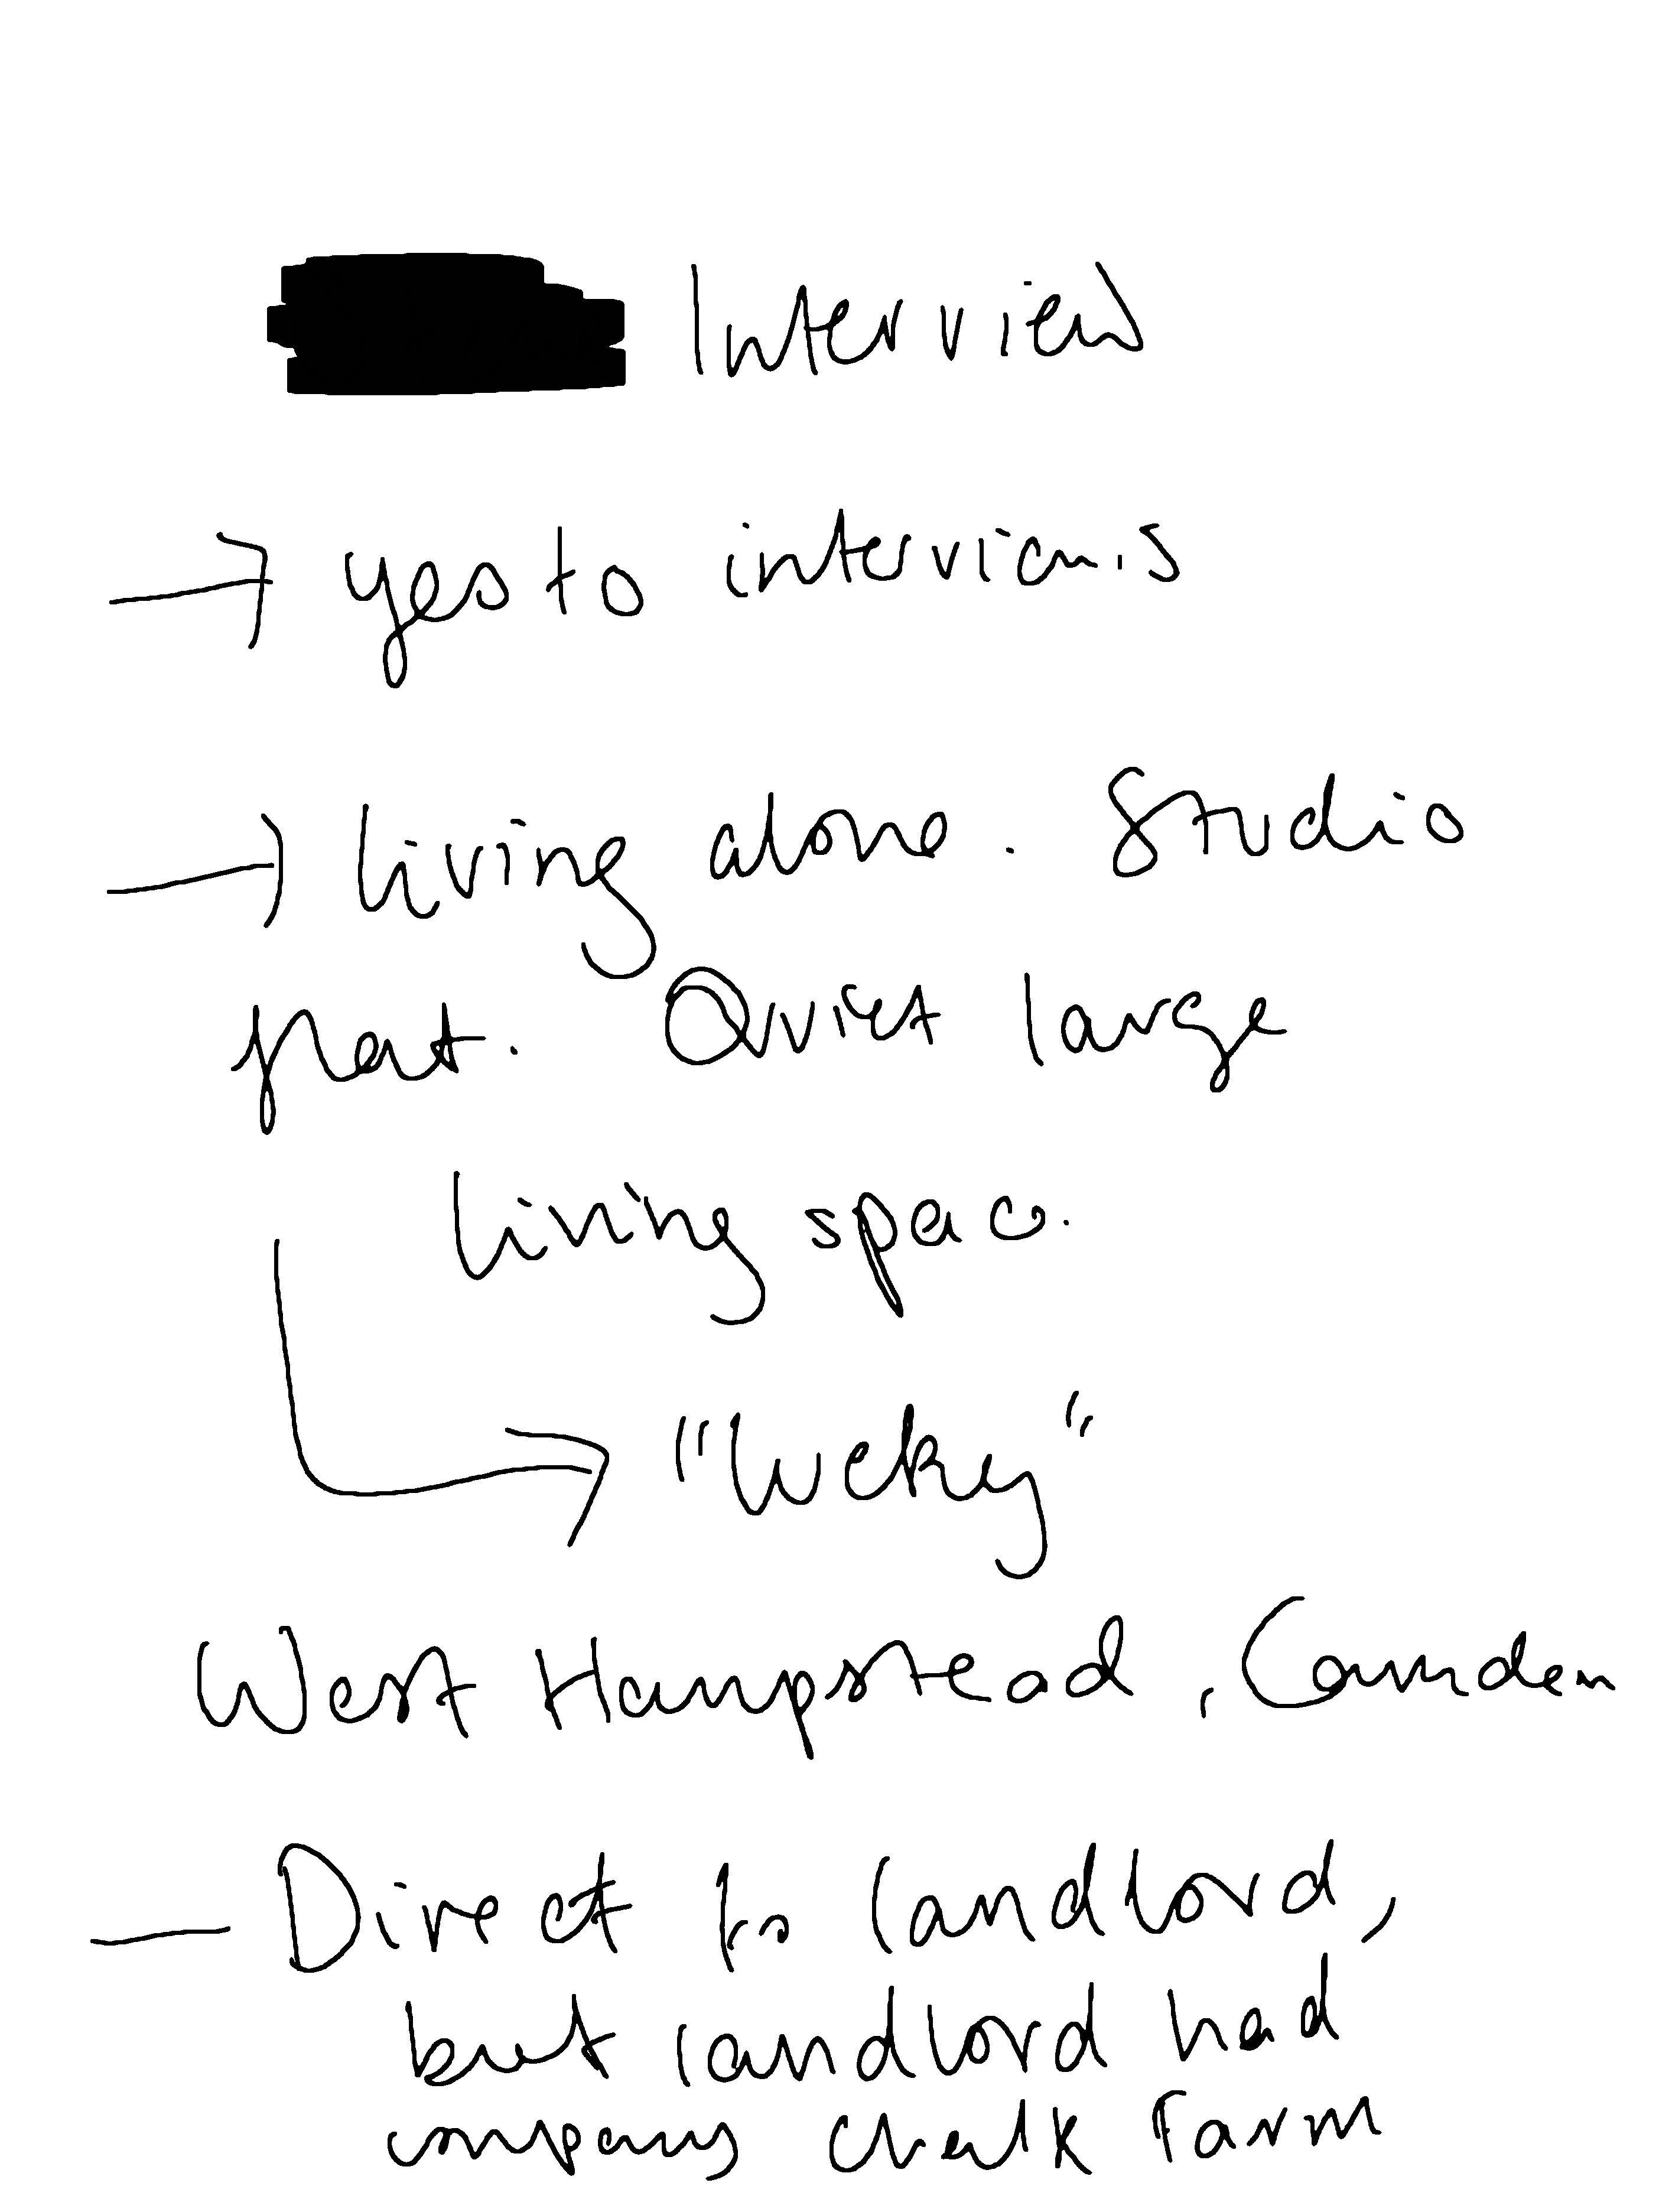 Interview
→ yes to interviews
→ living alone. Studio
flat. Quiet large
living space.
→ "lucky"
West Hampstead, Camden
— Direct to landlord,
but landlord had
company Chalk Farm